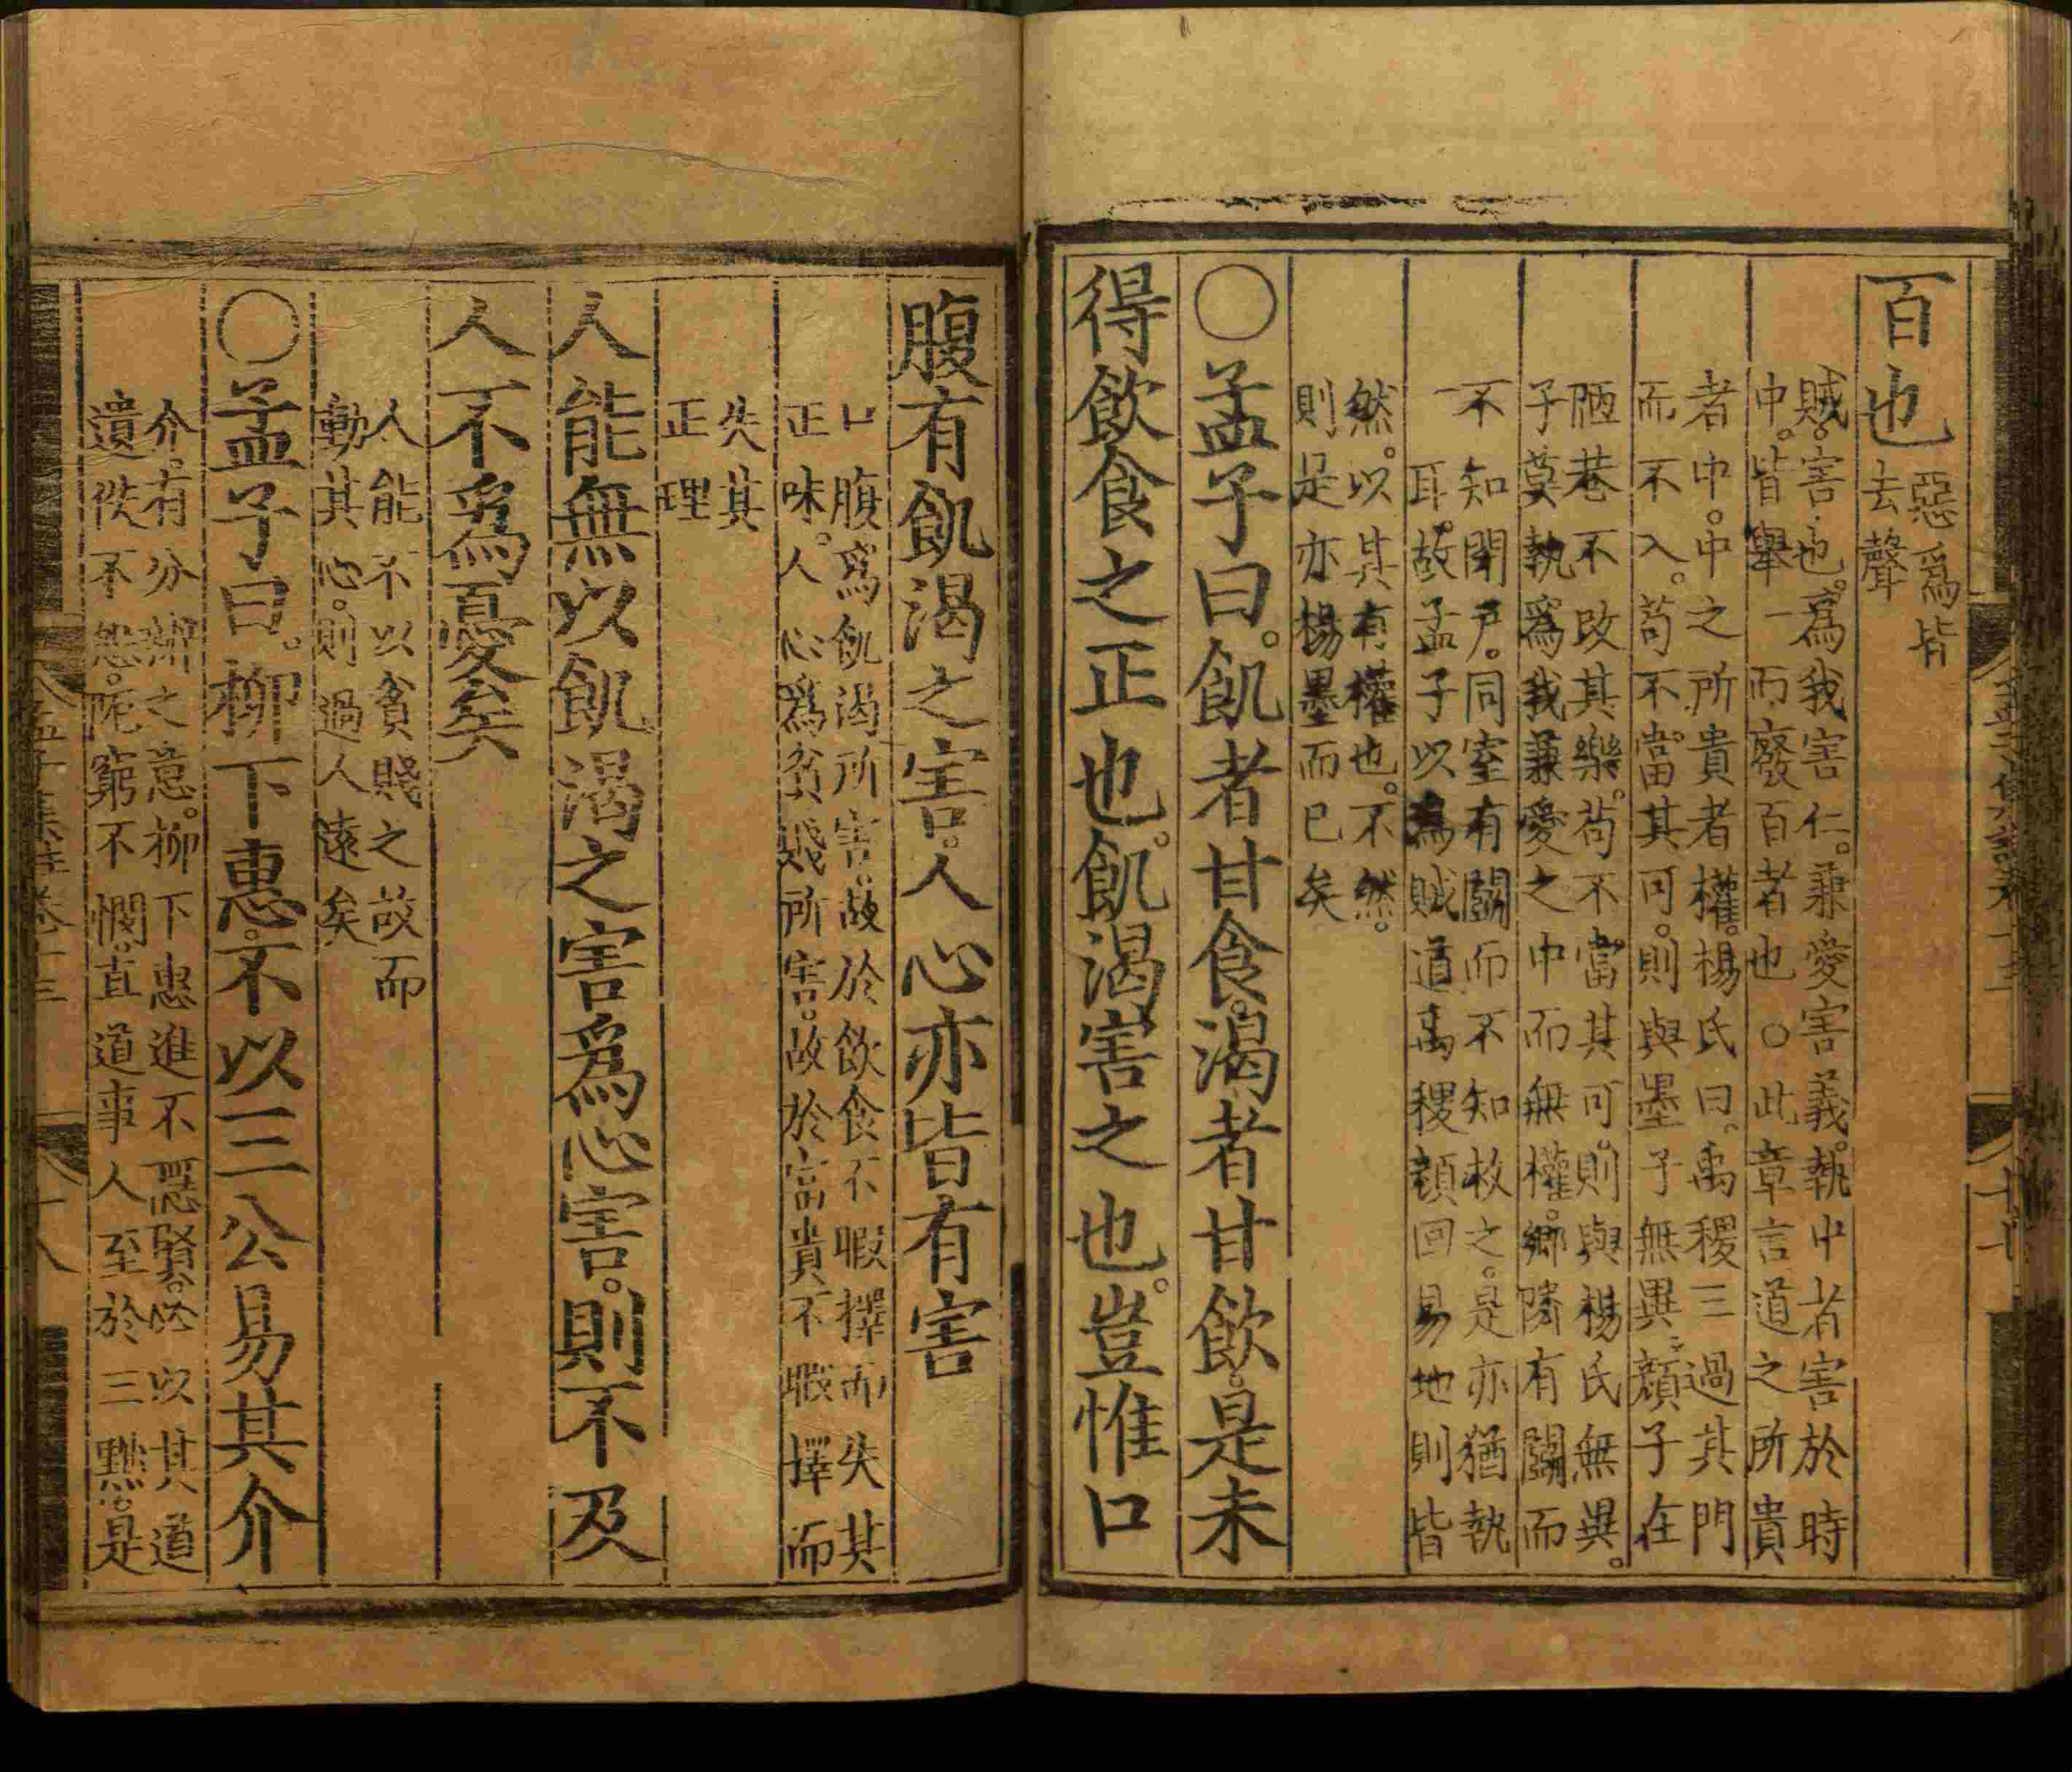 百也惡爲皆
去聲
賊。害也。爲我害仁。兼愛害義。執中者害於時
中。皆舉一而廢百者也○此章言道之所貴
者中。中之所貴者權。楊氏曰。禹稷三過其門
而不入。苟不當其可。則與墨子無異。顔子在
陋巷不改其樂。苟不當其可。則與楊氏無異。
子莫執爲我兼愛之中而無權。鄉隣有鬭而
不知閉戶。同室有鬭而不知救之。是亦猶執
一耳。故孟子以爲賊道禹稷顔回易地則皆
然。以其有權也。不然。
則是亦楊墨而已矣
○孟子曰。飢者甘食。渴者甘飮。是未
得飮食之正也。飢渴害之也。豈惟口
腹有飢渴之害。人心亦皆有害
口腹爲飢渴所害。故於飮食不暇擇而失其
正味。人心爲貧賤所害。故於富貴不暇擇而
失其
正理
人能無以飢渴之害爲心害。則不及
人不爲憂矣
人能不以貧賤之故而
動其心。則過人遠矣
○孟子曰。柳下惠。不以三公易其介
介。有分辨之意。柳下惠進不隱賢。必以其道
遺佚不怨。阨窮不憫。直道事人至於三黜。是
孟子集註卷十三
十八